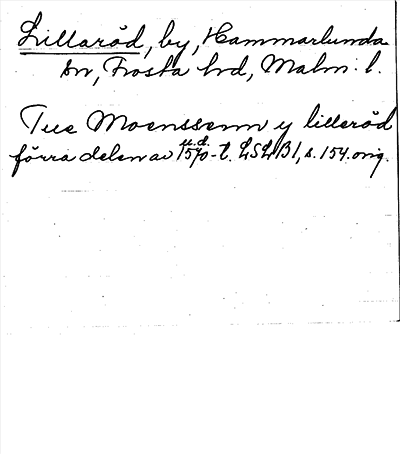 Lillaröd, by, Hammarlunda
sn, Frosta hd, Malm. l.
Tue Moenssenn y lilleröd
u.d.
förra delen av 1570-t. LSLB1, s. 154. orig.